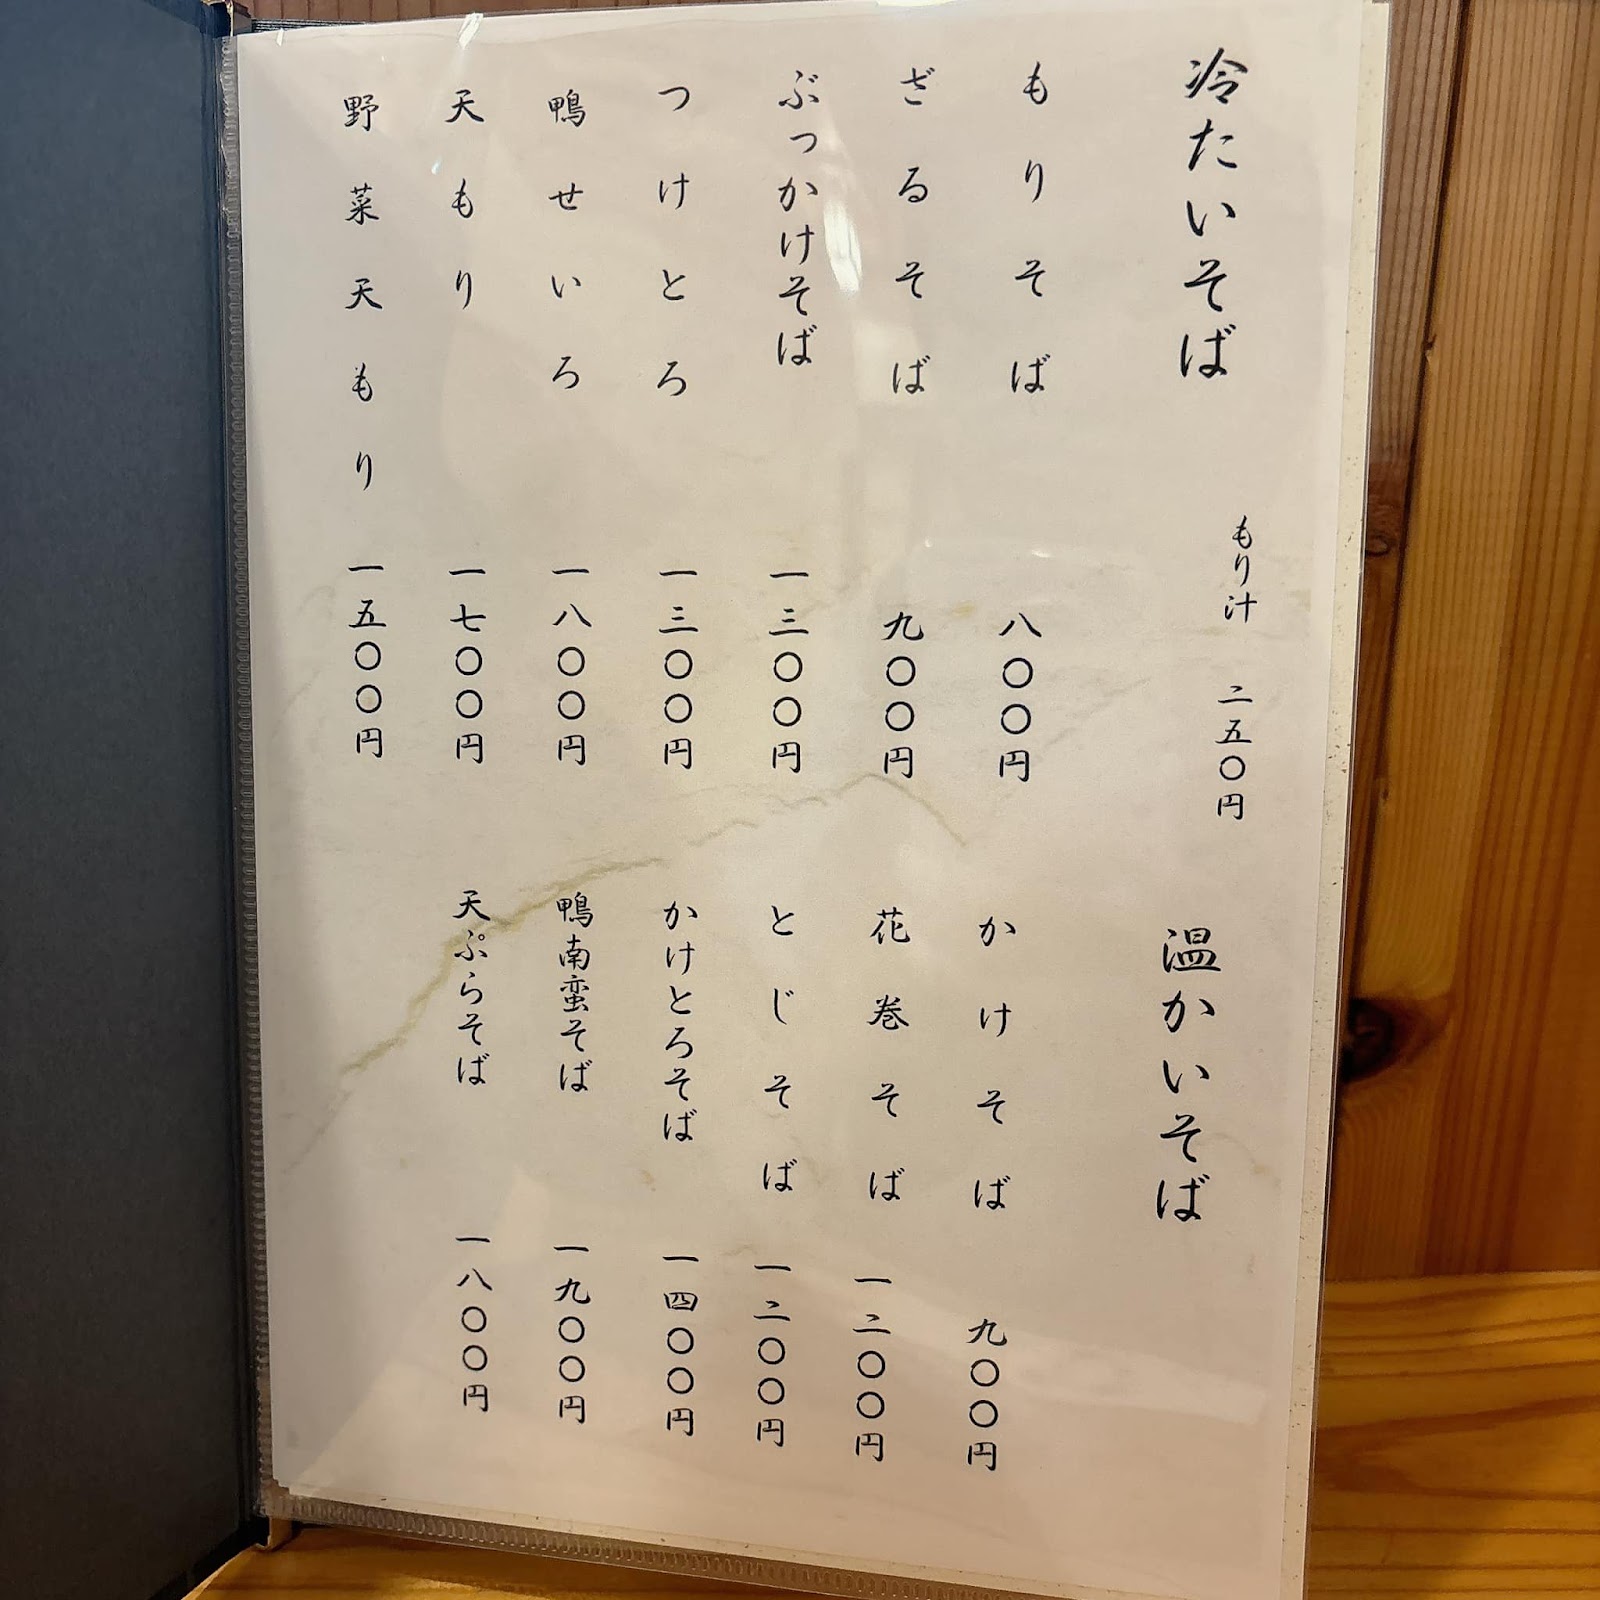 冷たいそば
もり汁 二五〇円
もりそば 八〇〇円
ざるそば 九〇〇円
ぶっかけそば 一三〇〇円
つけとろ 一三〇〇円
鴨せいろ 一八〇〇円
天もり 一七〇〇円
野菜天もり 一五〇〇円
温かいそば
かけそば 九〇〇円
花巻そば 一二〇〇円
とじそば 一二〇〇円
かけとろそば 一四〇〇円
鴨南蛮そば 一九〇〇円
天ぷらそば 一八〇〇円